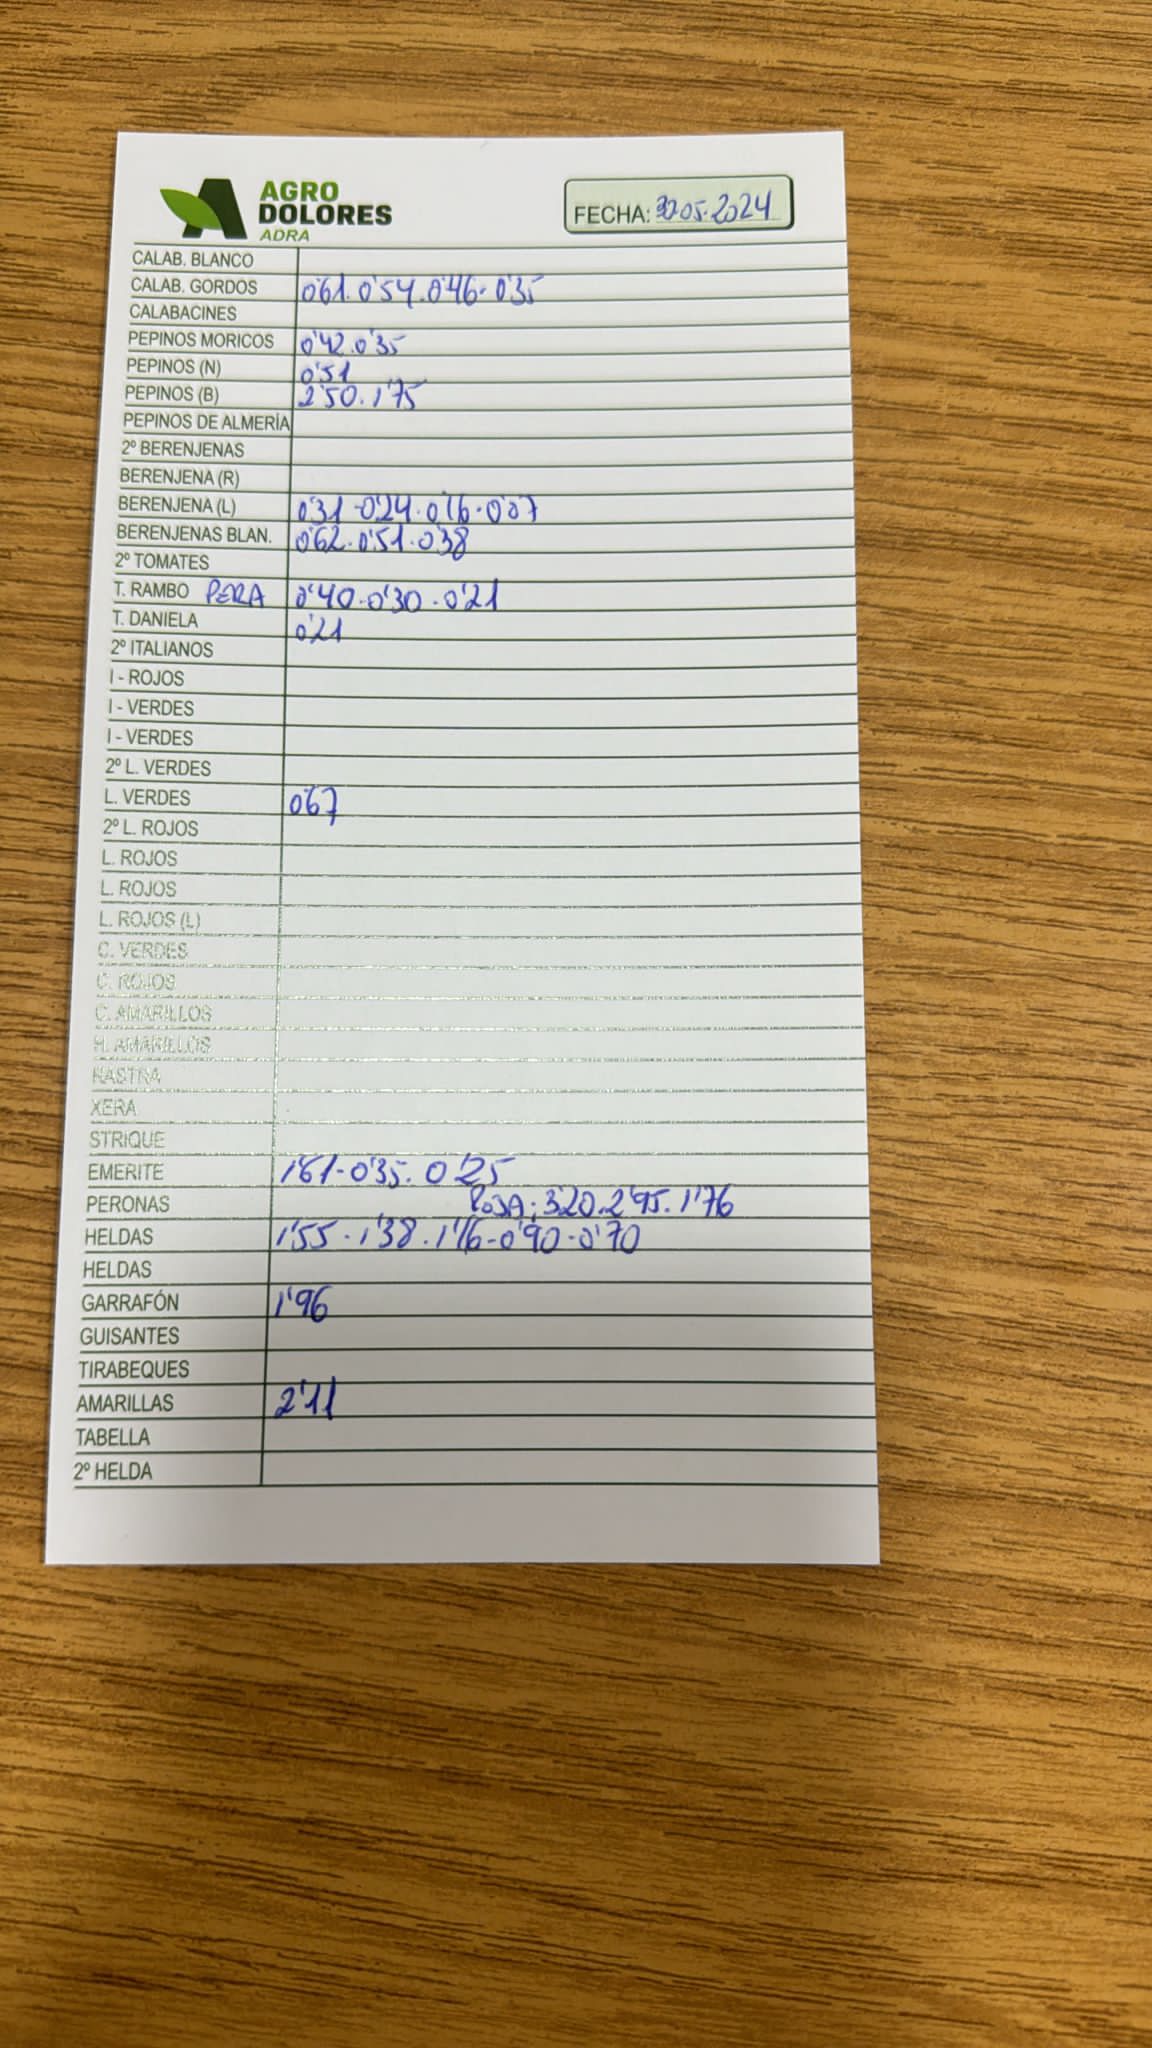 AGRO
DOLORES
ADRA
FECHA: 30.05.2024
CALAB. BLANCO
CALAB. GORDOS 0'61. 0'54. 0'46. 0'35
CALABACINES
PEPINOS MORICOS 0'42. 0'35
PEPINOS (N) 0'51
PEPINOS (B) 2'50. 1'75
PEPINOS DE ALMERÍA
2º BERENJENAS
BERENJENA (R)
BERENJENA (L) 0'31-0'24. 0'16. 0'07
BERENJENAS BLAN. 0'62. 0'51. 0'38
2º TOMATES
T. RAMBO PERA 0'40-0'30-0'21
T. DANIELA 0'21
2º ITALIANOS
I - ROJOS
I - VERDES
I - VERDES
2º L. VERDES
L. VERDES 0'67
2º L. ROJOS
L. ROJOS
L. ROJOS
L. ROJOS (L)
C. VERDES
C. ROJOS
C. AMARILLOS
H. AMARILLOS
RASTRA
XERA
STRIQUE
EMERITE 1'61-0'35. 0'25
PERONAS ROJA: 3'20. 2'95. 1'76
HELDAS 1'55. 1'38. 1'16-0'90-0'70
HELDAS
GARRAFÓN 1'96
GUISANTES
TIRABEQUES
AMARILLAS 2'11
TABELLA
2º HELDA